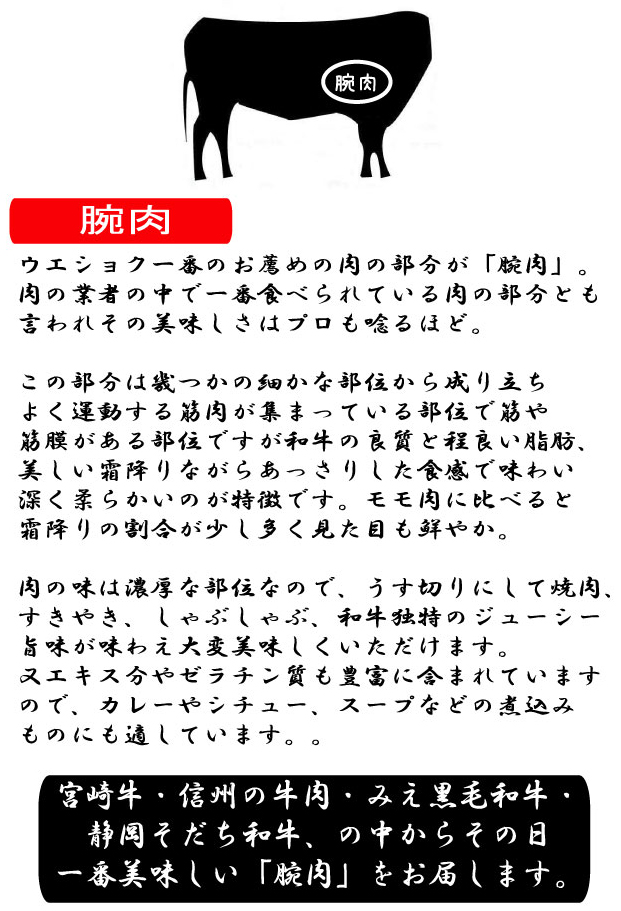 腕肉
腕肉
ウエショク一番のお薦めの肉の部分が「腕肉」。
肉の業者の中で一番食べられている肉の部分とも
言われその美味しさはプロも唸るほど。
この部分は幾つかの細かな部位から成り立ち
よく運動する筋肉が集まっている部位で筋や
筋膜がある部位ですが和牛の良質と程良い脂肪、
美しい霜降りながらあっさりした食感で味わい
深く柔らかいのが特徴です。モモ肉に比べると
霜降りの割合が少し多く見た目も鮮やか。
肉の味は濃厚な部位なので、うす切りにして焼肉、
すきやき、しゃぶしゃぶ、和牛独特のジューシー
旨味が味わえ大変美味しくいただけます。
又エキス分やゼラチン質も豊富に含まれています
ので、カレーやシチュー、スープなどの煮込み
ものにも適しています。。
宮崎牛・信州の牛肉・みえ黒毛和牛・
静岡そだち和牛、の中からその日
一番美味しい「腕肉」をお届します。